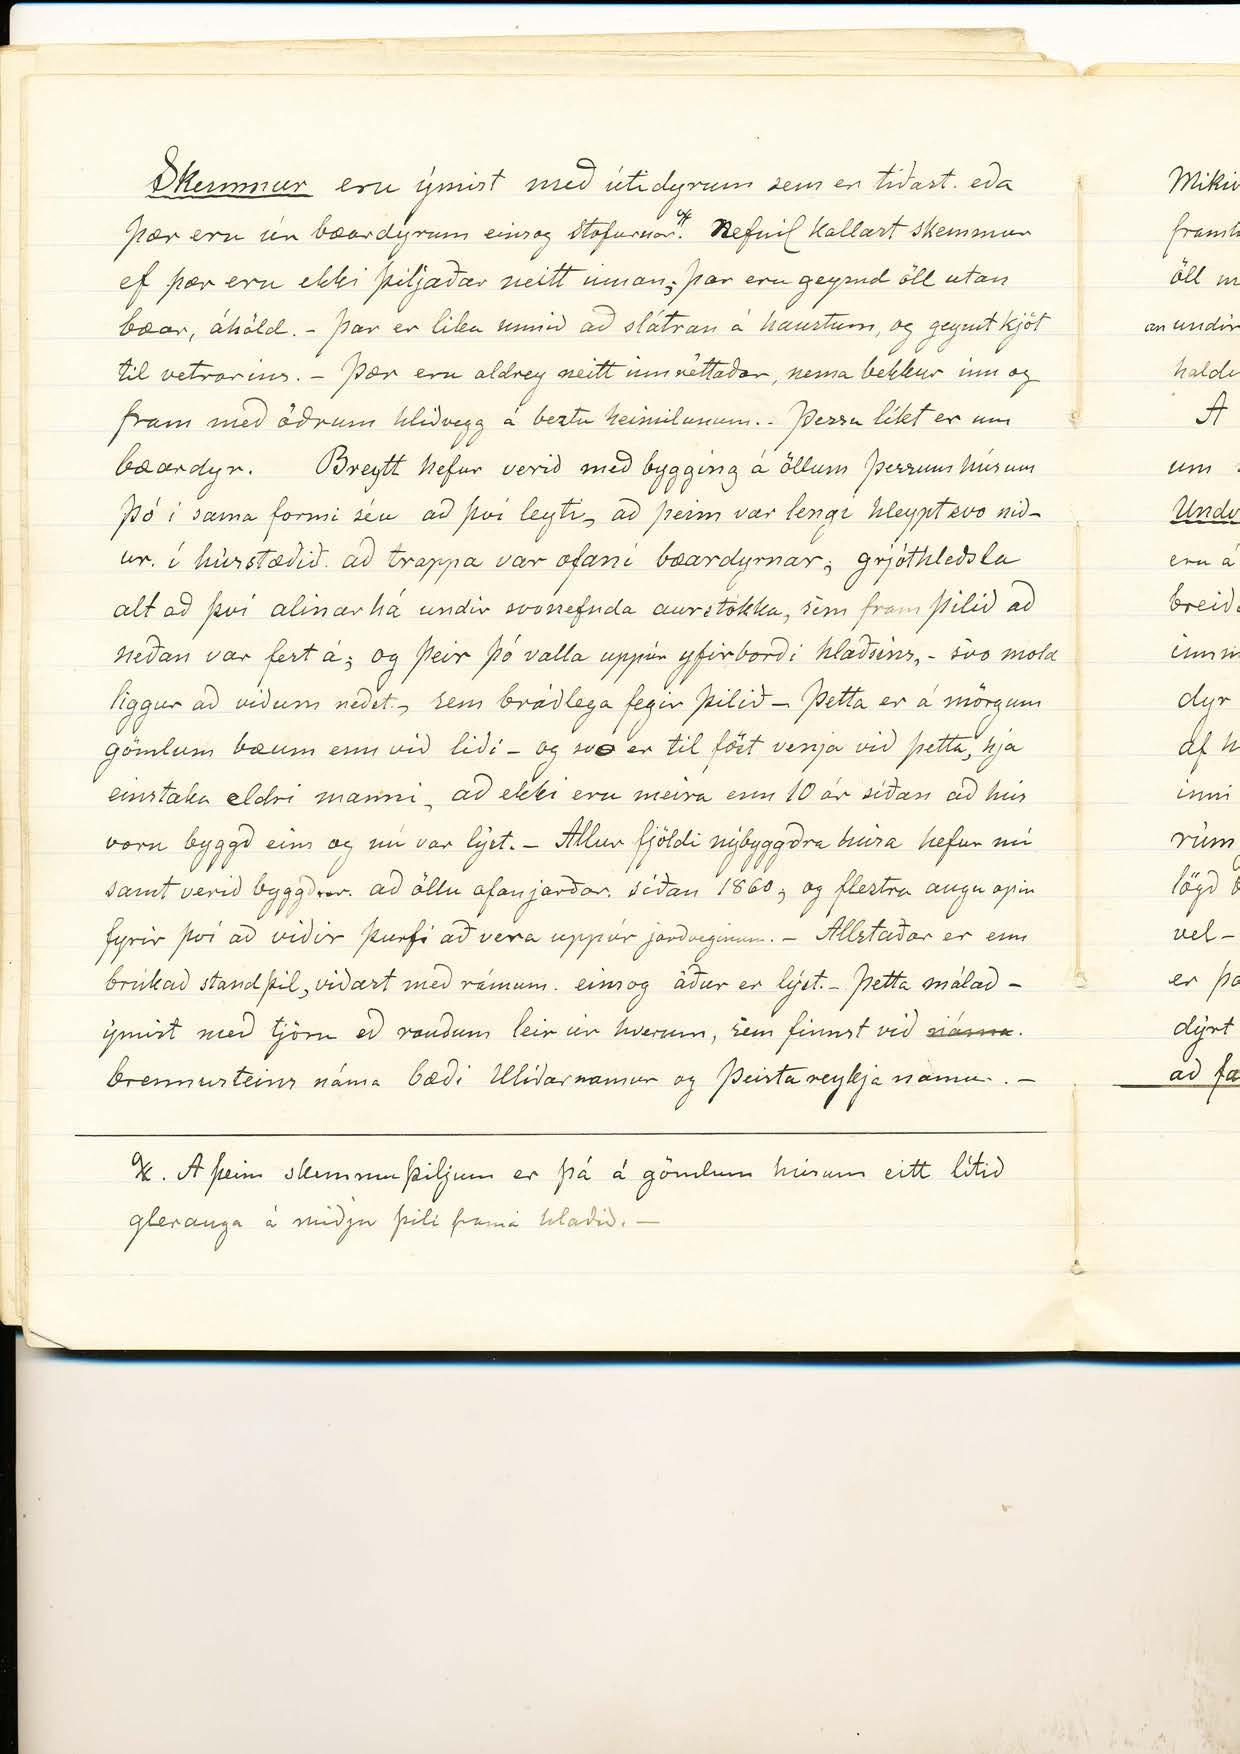 Skemmur eru ýmist með útidyrum sem er tíðast. eða
þær eru úr bæardyrum einsog stofurnar. Nefnil kallast skemmur
ef þær eru ekki þiljaðar neitt innan; þar eru geymd öll utan
bæar, áhöld. - Þar er líka unnið að slátran á haustum, og geymt kjöt
til vetrarins. - Þær eru aldrey neitt innréttaðar, nema bekkur inn og
fram með öðrum hliðvegg á beztu heimilunum. - Þessu líkt er um
bæardyr. Breytt hefur verið með bygging á öllum þessum húsum
þó í sama formi séu að því leyti, að þeim var lengi hleypt svo nið-
ur. í hússtæðið. að trappa var ofaní bæardyrnar; grjóthleðsla
alt að því alinar há undir svonefnda aurstokka, sem fram þilið að
neðan var fest á; og þeir þó valla uppúr yfirborði hlaðsins, - svo mold
liggur að viðum neðst, sem bráðlega fegir þilið - Þetta er á mörgum
gömlum bæum enn við líði - og svo er til föst venja við þetta, hja
einstaka eldri manni, að ekki eru meira enn 10 ár síðan að hús
voru byggð eins og nú var lýst. - Allur fjöldi nýbyggðra húsa hefur nú
samt verið byggður. að öllu ofanjarðar. síðan 1860, og flestra augu opin
fyrir því að viðir þurfi að vera uppúr jarðveginum. - Allstaðar er enn
brúkað standþil, viðast með rámum. einsog áður er lýst. - Þetta málað -
ýmist með tjöru eð rauðum leir úr hverum, sem finnst við náma.
brennusteins náma bæði Hlíðarnamur og Þeistareykja námu. -
A þeim skemmuþiljum er þá á gömlum húsum eitt lítið
glerauga á miðju þili framá hlaðið. -
Mikið
öll
an undir
A
um
eru á
dyr
af
inni
rúm
lögð
vel -
er þa
dýrt
að fæ